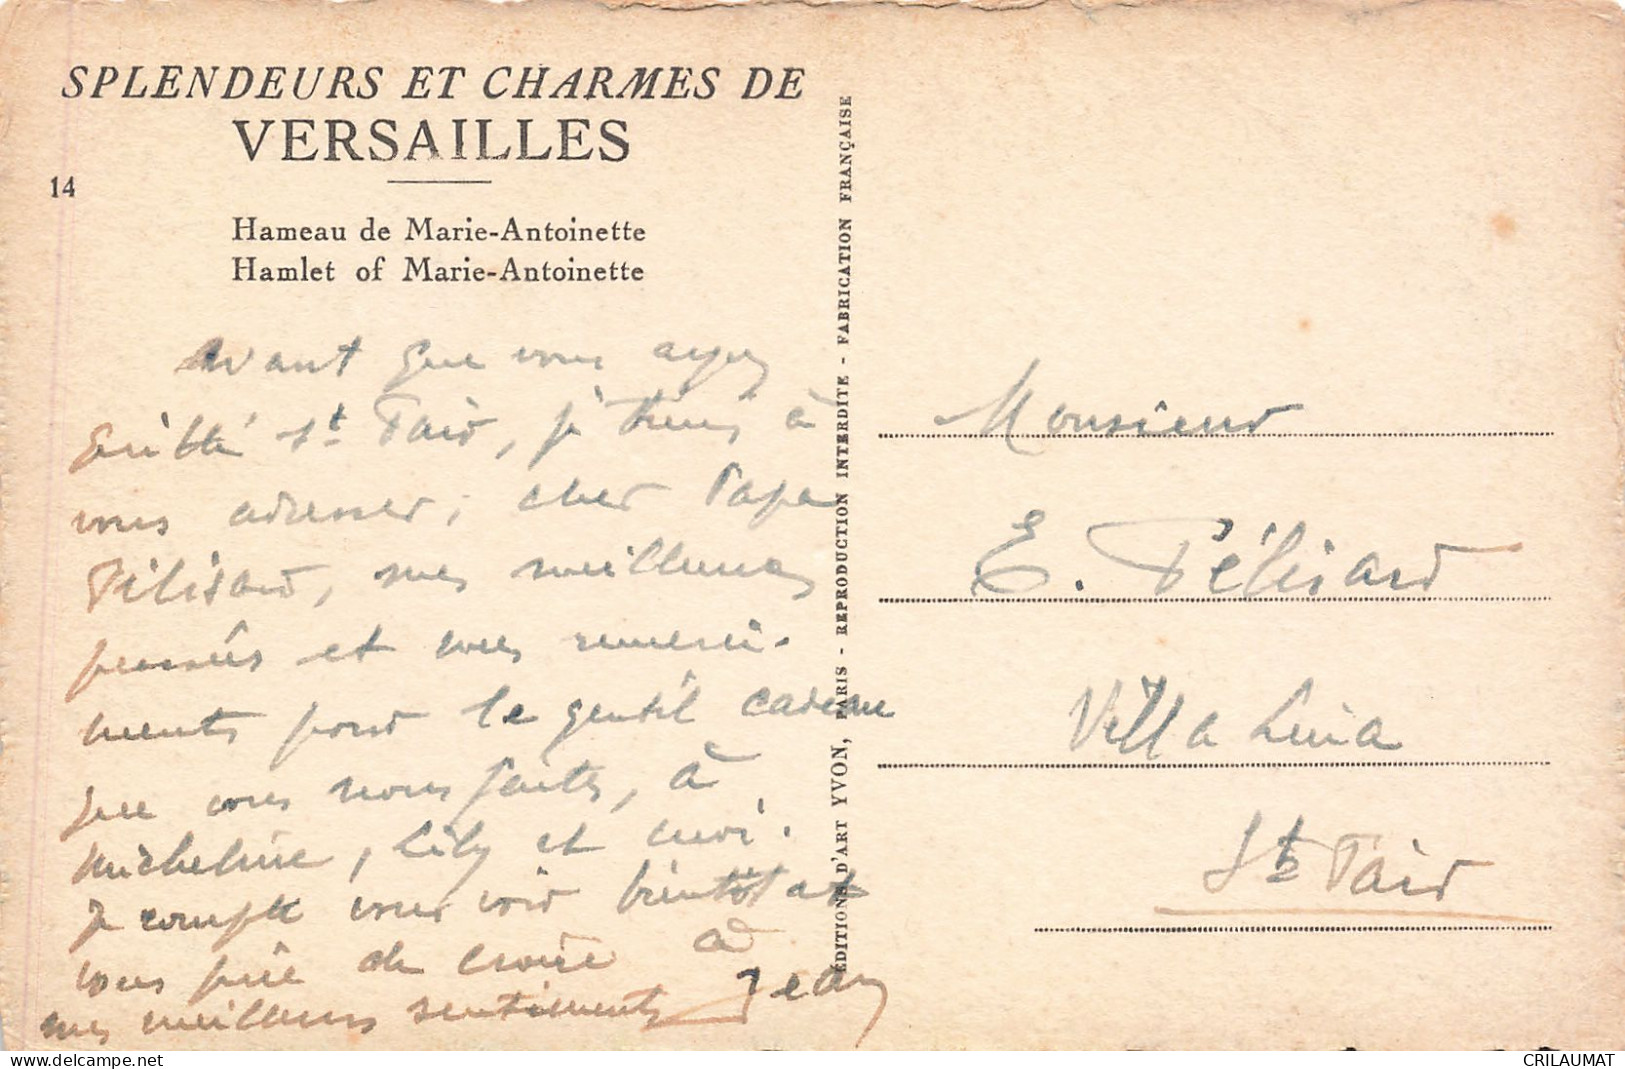 SPLENDEURS ET CHARMES DE
VERSAILLES
14
Hameau de Marie-Antoinette
Hamlet of Marie-Antoinette
Avant que vous ayez
quitté St. Pair, je tiens à
vous adresser, cher Papa
Pélisard, mes meilleures
pensées et mes remercie-
ments pour le gentil cadeau
que vous nous faites, à
Micheline, Lily et moi.
Je compte vous voir bientôt et
vous prie de croire à
mes meilleurs sentiments
Jean
ÉDITIONS D'ART YVON, PARIS - REPRODUCTION INTERDITE - FABRICATION FRANÇAISE
Monsieur
E. Pélisard
Villa
St Pair
CRILAUMAT
https://www.delcampe.net